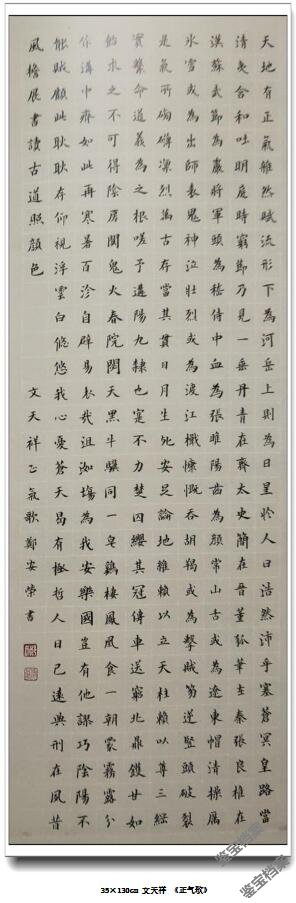 天地有正氣雜然賦流形下為河岳上則為日星於人曰浩然沛乎塞蒼冥皇路當
清夷含和吐明庭時窮節乃見一垂丹青在齊太史簡在晉董狐筆在秦張良椎在
漢蘇武節為嚴將軍頭為嵇侍中血為張睢陽齒為顏常山舌或為遼東帽清操厲
冰雪或為出師表鬼神泣壯烈或為渡江楫慷慨吞胡羯或為擊賊笏逆豎頭破裂
是氣所磅礴凜烈萬古存當其貫日月生死安足論地維賴以立天柱賴以尊三綱
實繫命道義為之根嗟予遘陽九隸也寔不力楚囚纓其冠傳車送窮北鼎鑊甘如
飴求之不可得陰房闃鬼火春院閟天黑牛驥同一皂鷄棲鳳凰食一朝蒙霧露分
作溝中瘠如此再寒暑百沴自辟易哀哉沮洳場為我安樂國豈有他謬巧陰陽不
能賊顧此耿耿存仰視浮雲白悠悠我心憂蒼天曷有極哲人日已遠典刑在夙昔
風檐展書讀古道照顏色
文天祥正氣歌鄭安榮書
鉴宝档案
35×130cm 文天祥 《正气歌》